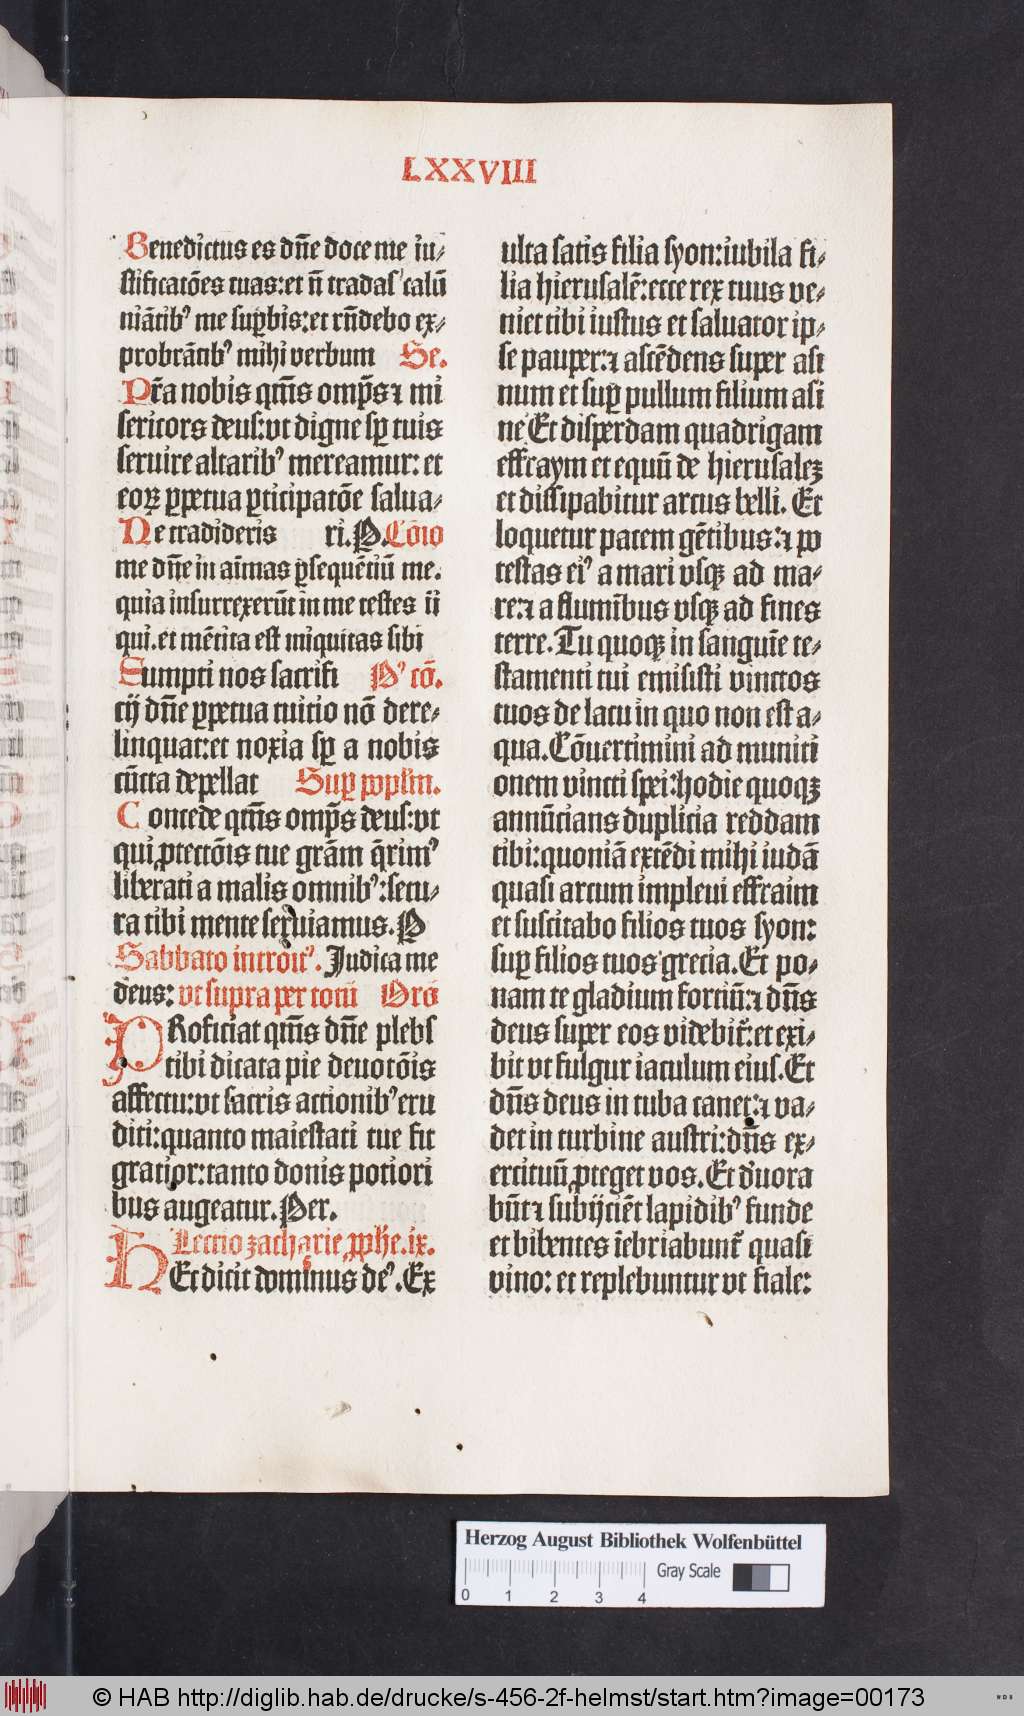 LXXVIII
Benedictus es dn̄e doce me iu⸗
stificatōes tuas:et n̄ tradas' calū
niātibꝰ me suꝑbis:et rn̄debo ex⸗
probrātibꝰ mihi verbum Se.
Pr̄a nobis qm̄s omp̄s ⁊ mi
sericors deus:vt digne sp̄ tuis
seruire altaribꝰ mereamur: et
eoꝝ ꝑpetua ꝑticipatōe salua⸗
Ne tradideris ri.P. Cōio
me dn̄e in aīmas ꝑsequētiū me.
quia insurrexerūt in me testes ii
qui.et mētita est iniquitas sibi
Sumpti nos sacrifi Pꝰ cō.
cij dn̄e ꝑpetua tuitio nō dere⸗
linquat:et noxia sp̄ a nobis
cūcta depellat Suꝑ pop̄lm̄.
Concede qm̄s omp̄s deus:vt
qui ꝓtectōis tue grām q̄rimꝰ
liberati a malis omnibꝰ:secu⸗
ra tibi mente seruiamus.P
Sabbato introitꝰ. Judica me
deus: vt supra per totū Orō
PRoficiat qm̄s dn̄e plebs
tibi dicata pie deuotōis
affectu:vt sacris actionibꝰ eru
diti:quanto maiestati tue fit
gratior:tanto donis potiori
bus augeatur. Per.
Lectio zacharie ꝓphe.ix.
HEc dicit dominus deꝰ. Ex
ulta satis filia syon:iubila fi⸗
lia hierusalē:ecce rex tuus ve⸗
niet tibi iustus et saluator ip⸗
se pauper:⁊ ascēdens super asi
num et suꝑ pullum filium asi
ne Et disperdam quadrigam
effraym et equū de hierusalez
et dissipabitur arcus belli. Et
loquetur pacem gētibus:⁊ po
testas eiꝰ a mari vsqꝫ ad ma⸗
re:⁊ a flumībus vsqꝫ ad fines
terre. Tu quoqꝫ in sanguīe te⸗
stamenti tui emisisti vinctos
tuos de lacu in quo non est a⸗
qua. Cōuertimini ad muniti
onem vincti spei:hodie quoqꝫ
annūcians duplicia reddam
tibi:quoniā extēdi mihi iudā
quasi arcum impleui effraim
et suscitabo filios tuos syon:
suꝑ filios tuos grecia. Et po⸗
nam te gladium fortiū:⁊ dn̄s
deus super eos videbit̄:et exi⸗
bit vt fulgur iaculum eius. Et
dn̄s deus in tuba canet:⁊ va⸗
det in turbine austri:dn̄s ex⸗
ercituū ꝓteget vos. Et d'uora
būt ⁊ subijciēt lapidibꝰ funde
et bibentes īebriabunt̄ quasi
vino: et replebuntur vt fiale:
Herzog August Bibliothek Wolfenbüttel
Gray Scale
0 1 2 3 4
© HAB http://diglib.hab.de/drucke/s-456-2f-helmst/start.htm?image=00173